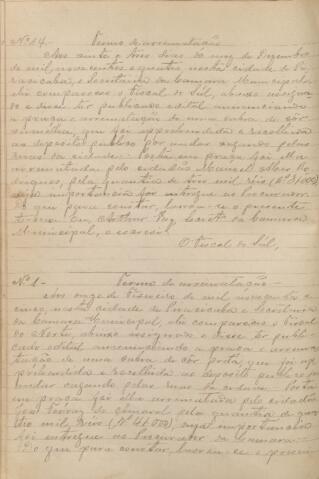 Nº 24. Termo de arrematação
Aos vinte e tres dias do mez de Dezembro
de mil novecentos e quatro nesta cidade de Pi-
racicaba, e Secretaria da Camara Municipal
ahi compareceu o Fiscal do Sul, abaixo assigna-
do e disse ter publicado edital annunciando
a praça e arrematação de uma cabra de côr
vermelha, que foi apprehendida e recolhida
ao deposito publico por andar vagando pelas
ruas da cidade. Posta em praça foi ella
arrematada pelo cidadão Manoel Alves Ro-
drigues, pela quantia de dois mil réis
cuja importancia foi entregue ao Procurador.
Do que para constar, lavrou-se o presente
termo. Eu, Arthur Vaz, Secretº da Camara
Municipal, o escrevi.
O Fiscal do Sul,
Nº 1 - Termo de arrematação -
Aos onze de Fevereiro de mil novecentos e
cinco, nesta cidade de Piracicaba e Secretaria
da Camara Municipal, ahi compareceu o Fiscal
do Norte, abaixo assignado e disse ter publi-
cado edital annunciando a praça e arrema-
tação de uma cabra de côr preta, que foi ap-
prehendida e recolhida ao deposito publico por
andar vagando pelas ruas da cidade. Posta
em praça foi ella arrematada pelo cidadão
de Amaral pela quantia de qua-
tro mil réis (Rs 4$000), cuja importancia
foi entregue ao Procurador da Camara.
Do que para constar, lavrou-se o presen-